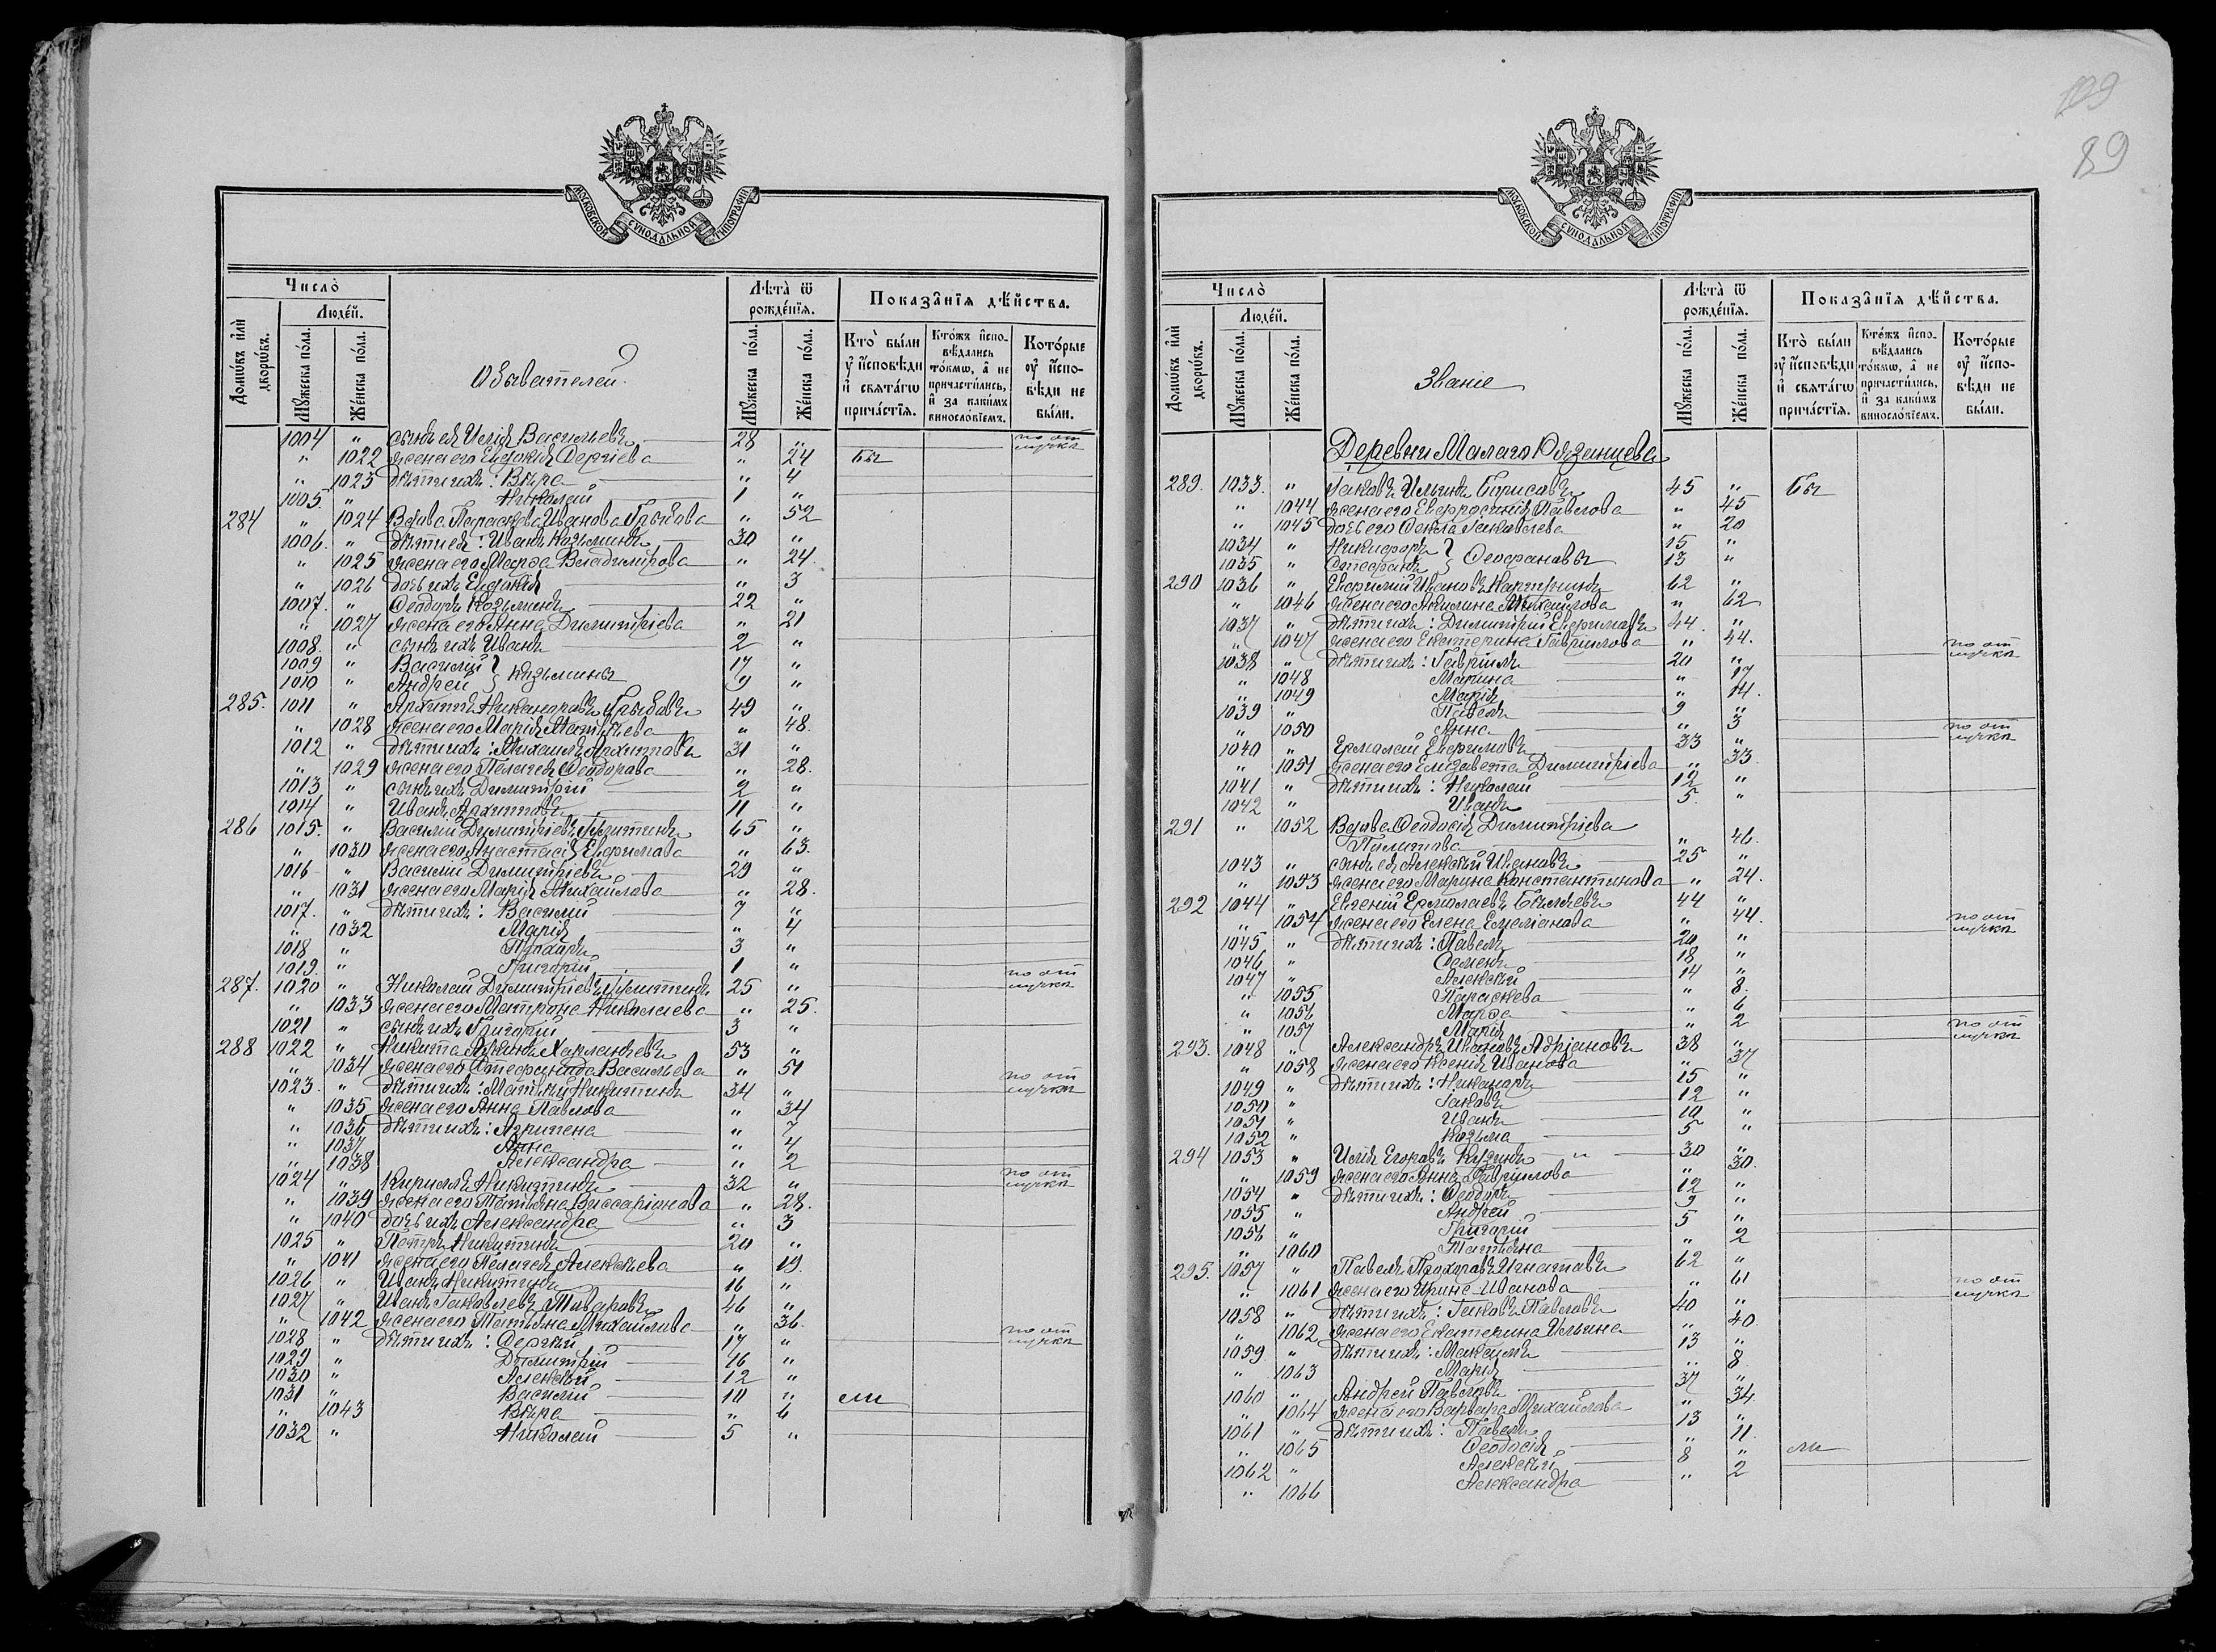 МОСКОВСКОЙ СѴНОДАЛЬНОЙ ТИПОГРАФІИ
Число̀
Домѡ́въ и҆лѝ дворѡ́въ.
Люде́й.
Мꙋ́жеска по́ла.
Же́нска по́ла.
Обывателей.
Лѣ́та ѿ рожде́нїѧ.
Мꙋ́жеска по́ла.
Же́нска по́ла.
Показа̑нїѧ дѣ́йства.
Кто̀ бы́ли оу҆ и҆сповѣ́ди и҆ свѧта́гѡ прича́стїѧ.
Кто́жъ и҆сповѣ́дались то́кмѡ, а҆ не причасти́лись, и҆ за каки́мъ виносло́вїемъ.
Кото́рые оу҆ и҆сповѣ́ди не бы́ли.
1004 " сынъ ея Илія Васильевъ 28 " по отлучкѣ
" 1022 жена его Евдокія Сергіева " 24 бы
" 1023 дѣти ихъ: Вѣра " 4
1005. " Николай 1 "
284 " 1024 Вдова Параскева Иванова Грибова " 52
1006. " дѣти ея: Иванъ Козьминъ 30 "
" 1025 жена его Марѳа Владимірова " 24.
" 1026 дочь ихъ Евдокія " 3
1007. " Ѳеодоръ Козьминъ 22 "
" 1027 жена его Анна Димитріева " 21
1008. " сынъ ихъ Иванъ 2 "
1009 " Василій } Козьмины 17 "
1010 " Андрей 9 "
285. 1011 " Архиппъ Никаноровъ Грибовъ 49 "
" 1028 жена его Марія Матвѣева " 48.
1012 " дѣти ихъ: Михаилъ Архипповъ 31 "
" 1029 жена его Пелагія Ѳеодорова " 28.
1013 " сынъ ихъ Димитрій 2 "
1014 " Иванъ Архипповъ 11 "
286 1015. " Василій Димитріевъ 65 "
" 1030 жена его Анастасія Ефимова " 63.
1016 " Василій Димитріевъ 29 "
" 1031 жена его Марія Михайлова " 28.
1017. " дѣти ихъ: Василій 7 "
" 1032 Марія " 4
1018 " Прохоръ 3 "
1019. " Григорій 1 "
287. 1020 " Николай Димитріевъ 25 " по отлучкѣ
" 1033 жена его Матрона Николаева " 25.
1021 " сынъ ихъ Григорій 3 "
288 1022 " Никита Харлампіевъ 53 "
" 1034 жена его Стефанида Васильева " 51
1023. " дѣти ихъ: Матвѣй Никитинъ 34 " по отлучкѣ
" 1035 жена его Анна Павлова " 34
" 1036 дѣти ихъ: Агрипена " 7
" 1037 Анна " 4
" 1038 Александра " 2
1024 " Кириллъ Никитинъ 32 " по отлучкѣ
" 1039 жена его Татьяна Виссаріонова " 28.
" 1040 дочь ихъ Александра " 3
1025 " Петръ Никитинъ 20 "
" 1041 жена его Пелагія Алексѣева " 19.
1026 " Иванъ Никитинъ 16 "
1027 " Иванъ Іаковлевъ 46 "
" 1042 жена его Татьяна Михайлова " 36.
1028 " дѣти ихъ: Сергѣй 17 " по отлучкѣ
1029 " Димитрій 16 "
1030 " Алексѣй 12 "
1031 " Василій 10 " ли
" 1043 Вѣра " 6
1032 " Николай 5 "
109
89
МОСКОВСКОЙ СѴНОДАЛЬНОЙ ТИПОГРАФІИ
Число̀
Домѡ́въ и҆лѝ дворѡ́въ.
Люде́й.
Мꙋ́жеска по́ла.
Же́нска по́ла.
Званіе
Лѣ́та ѿ рожде́нїѧ.
Мꙋ́жеска по́ла.
Же́нска по́ла.
Показа̑нїѧ дѣ́йства.
Кто̀ бы́ли оу҆ и҆сповѣ́ди и҆ свѧта́гѡ прича́стїѧ.
Кто́жъ и҆сповѣ́дались то́кмѡ, а҆ не причасти́лись, и҆ за каки́мъ виносло́вїемъ.
Кото́рые оу҆ и҆сповѣ́ди не бы́ли.
Деревни Малаго
289. 1033. " Іаковъ Ильинъ Борисовъ 45 " бы
" 1044 жена его Евфросинія Павлова " 45
" 1045 дочь его Ѳекла Іаковлева " 20
1034 " Никифоръ } Ѳеофановы 15 "
1035 " Стефанъ 13 "
290 1036 " Ефимій Ивановъ 62 "
" 1046 жена его Акилина Михайлова " 62
1037 " дѣти ихъ: Димитрій Ефимовъ 44. "
" 1047 жена его Екатерина Гавріилова " 44.
1038 " дѣти ихъ: Гавріилъ 20 " по отлучкѣ
" 1048 Марина " 17
" 1049 Марія " 14.
1039 " Павелъ 9 "
" 1050 Анна " 3
1040 " Ермолай Ефимовъ 33 " по отлучкѣ
" 1051 жена его Елизавета Димитріева " 33.
1041 " дѣти ихъ: Николай 12 "
1042 " Иванъ 5. "
291 " 1052 Вдова Ѳеодосія Димитріева
Политова " 46.
1043 " сынъ ея Алексѣй Ивановъ 25 "
" 1053 жена его Марина Константинова " 24.
292 1044 " Евгеній Ермолаевъ Бѣляевъ 44 "
" 1054 жена его Елена Емеліанова " 44.
1045 " дѣти ихъ: Павелъ 20 " по отлучкѣ
1046 " Семенъ 18 "
1047 " Алексѣй 14 "
" 1055 Параскева " 8.
" 1056 Марѳа " 6
" 1057 Марія " 2
293. 1048 " Александръ Ивановъ Адріановъ 38 " по отлучкѣ
" 1058 жена его Ксенія Иванова " 37
1049 " дѣти ихъ: Никаноръ 15 "
1050 " Іаковъ 12 "
1051 " Иванъ 10 "
1052 " Козьма 5 "
294 1053 " Илія Егоровъ 30 "
" 1059 жена его Анна Гавріилова " 30.
1054 " дѣти ихъ: Ѳеодоръ 12 "
1055 " Андрей 9 "
1056 " Григорій 5 "
" 1060 Татьяна " 2
295. 1057 " Павелъ Прохоровъ Игнатовъ 62 "
" 1061 жена его Ирина Иванова " 61
1058 " дѣти ихъ: Іаковъ Павловъ 40 " по отлучкѣ
" 1062 жена его Екатерина Ильина " 40
1059 " дѣти ихъ: Максимъ 13 "
" 1063 Марія " 8.
1060 " Андрей Павловъ 37 "
" 1064 жена его Варвара Михайлова " 34.
1061 " дѣти ихъ: Павелъ 13 "
" 1065 Ѳеодосія " 11.
1062 " Алексѣй 8 " ли
" 1066 Александра " 2